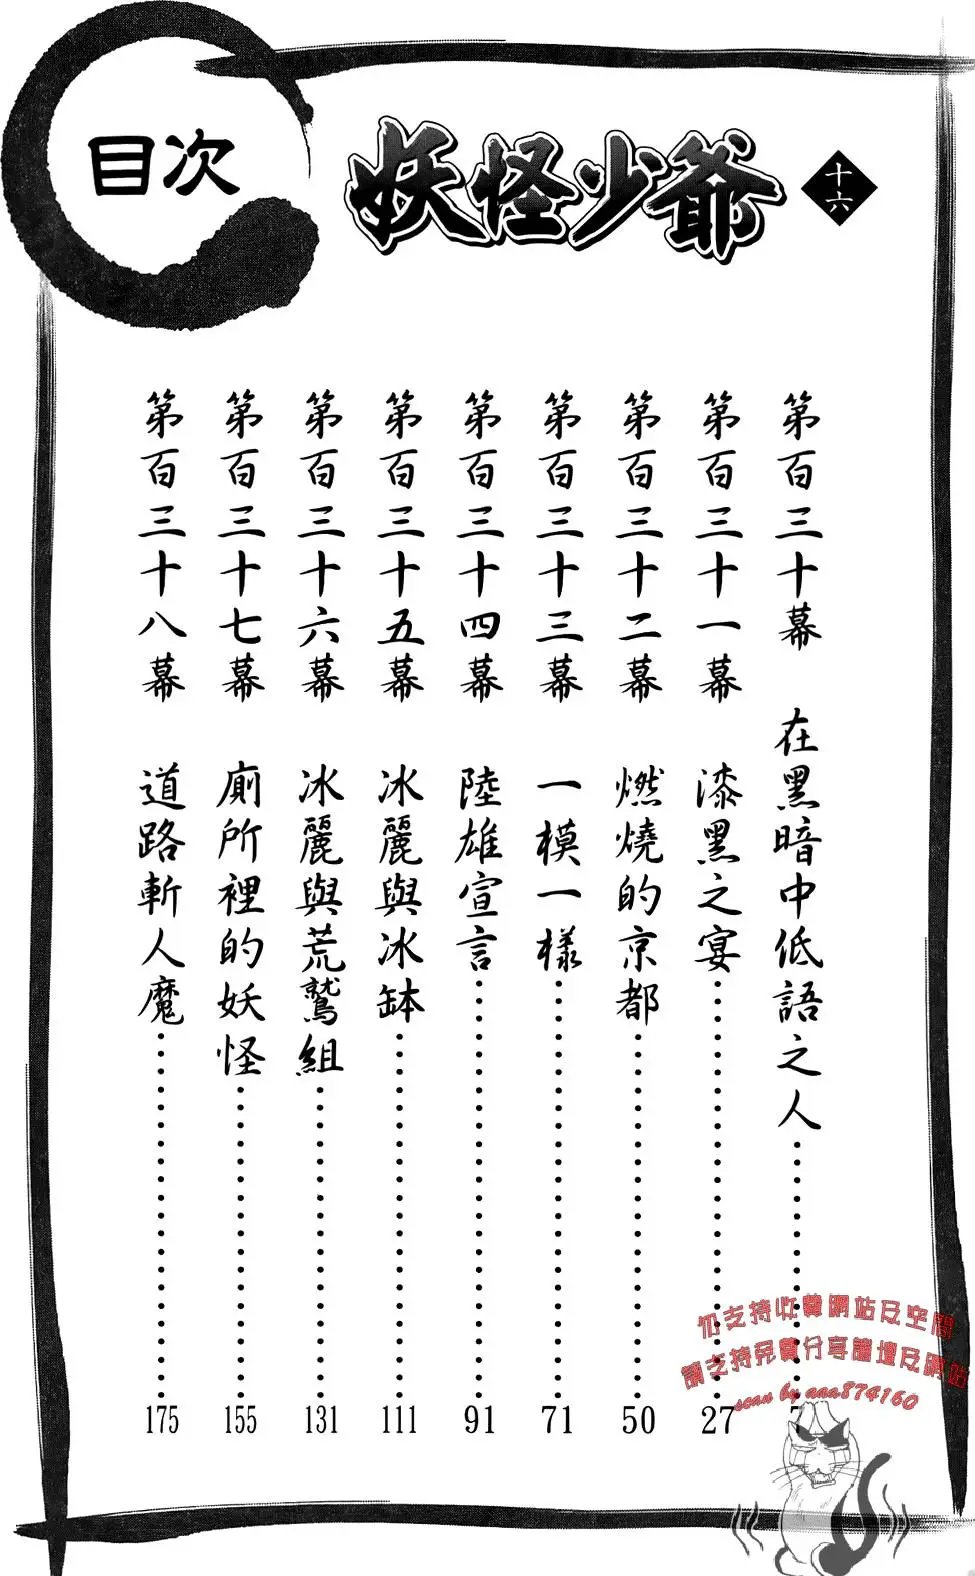 目次
妖怪少爺
十六
第百三十幕 在黑暗中低語之人……
第百三十一幕 漆黑之宴……27
第百三十二幕 燃燒的京都……50
第百三十三幕 一模一樣……71
第百三十四幕 陸雄宣言……91
第百三十五幕 冰麗與冰缽……111
第百三十六幕 冰麗與荒鷲組……131
第百三十七幕 廁所裡的妖怪……155
第百三十八幕 道路斬人魔……175
仍支持收費網站及空間
請支持免費分享論壇及網站
scan by aaa874160